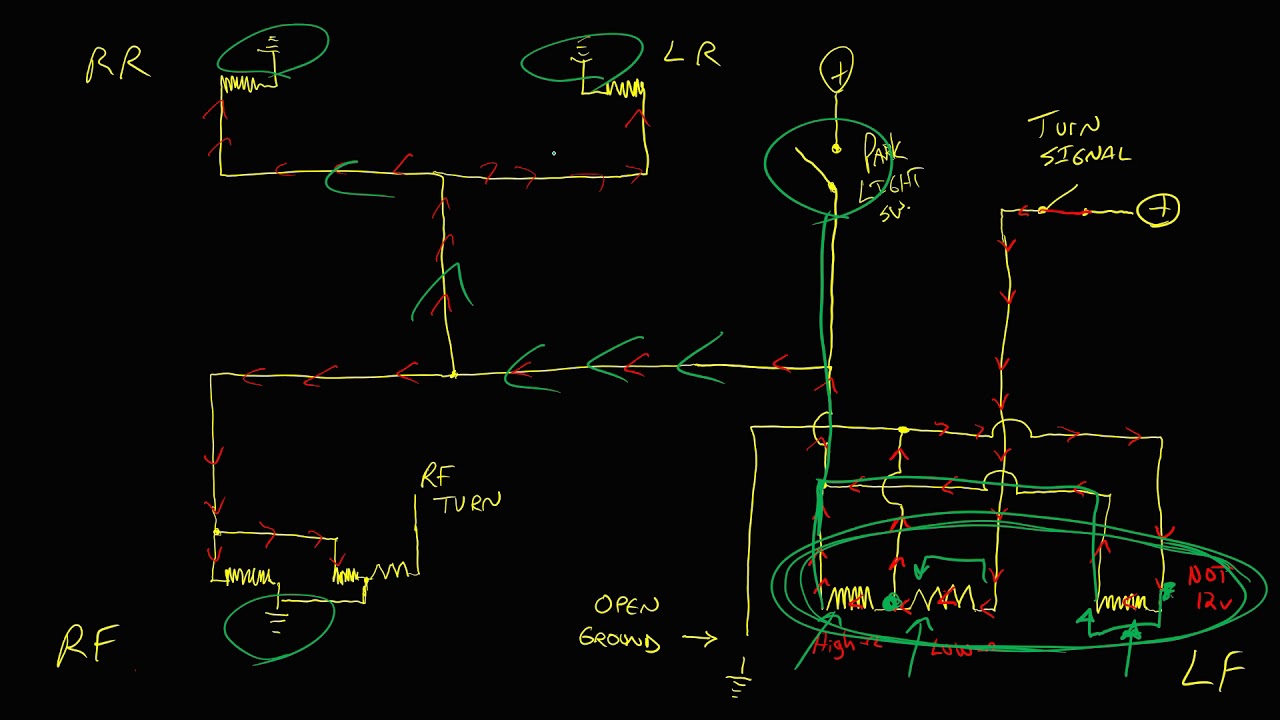 RR
LR
+
TURN
SIGNAL
PARK
LIGHT
SW.
+
RF
TURN
NOT
12V
OPEN
GROUND →
High Ω
Low Ω
RF
LF